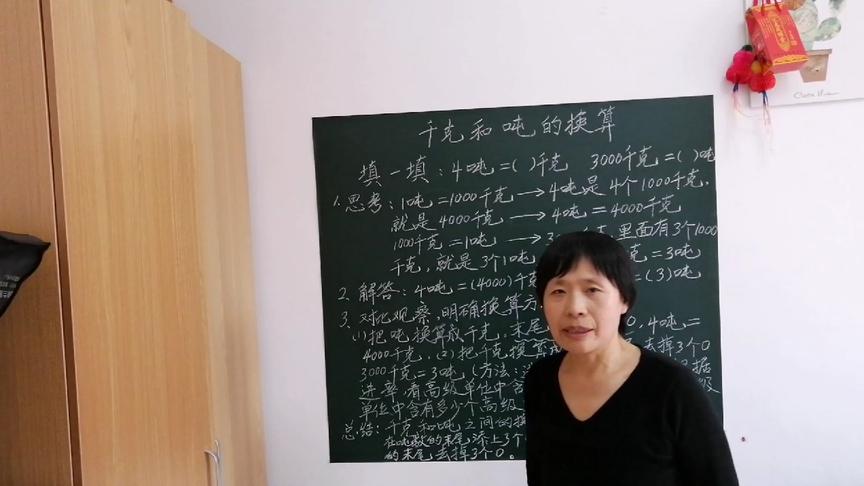 千克和吨的换算
填一填：4吨=( )千克 3000千克=( )吨
1、思考：1吨=1000千克→4吨是4个1000千克，
就是4000千克→4吨=4000千克
1000千克=1吨→3 里面有3个1000
千克，就是3个1吨 克=3吨
2、解答：4吨=(4000)千克 =(3)吨
3、对比观察，明确换算方
(1)把吨换算成千克，末尾 0，4吨=
4000千克，(2)把千克换算成 去掉3个0
3000千克=3吨，(方法： 据
进率，看高级单位中含 级
单位中含有多少个高级
总结：千克和吨之间的换
在吨数的末尾添上3个
的末尾去掉3个0。